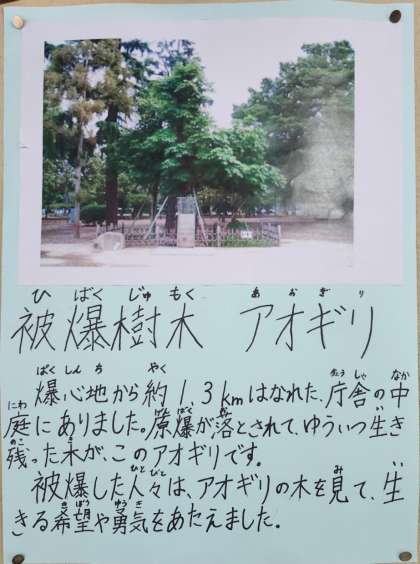 ひばくじゅもく あおぎり
被爆樹木 アオギリ
ばくしんち やく
爆心地から約1.3kmはなれた、庁舎の中
庭にありました。原爆が落とされて、ゆういつ生き
残った木が、このアオギリです。
被爆した人々は、アオギリの木を見て、生
きる希望や勇気をあたえました。